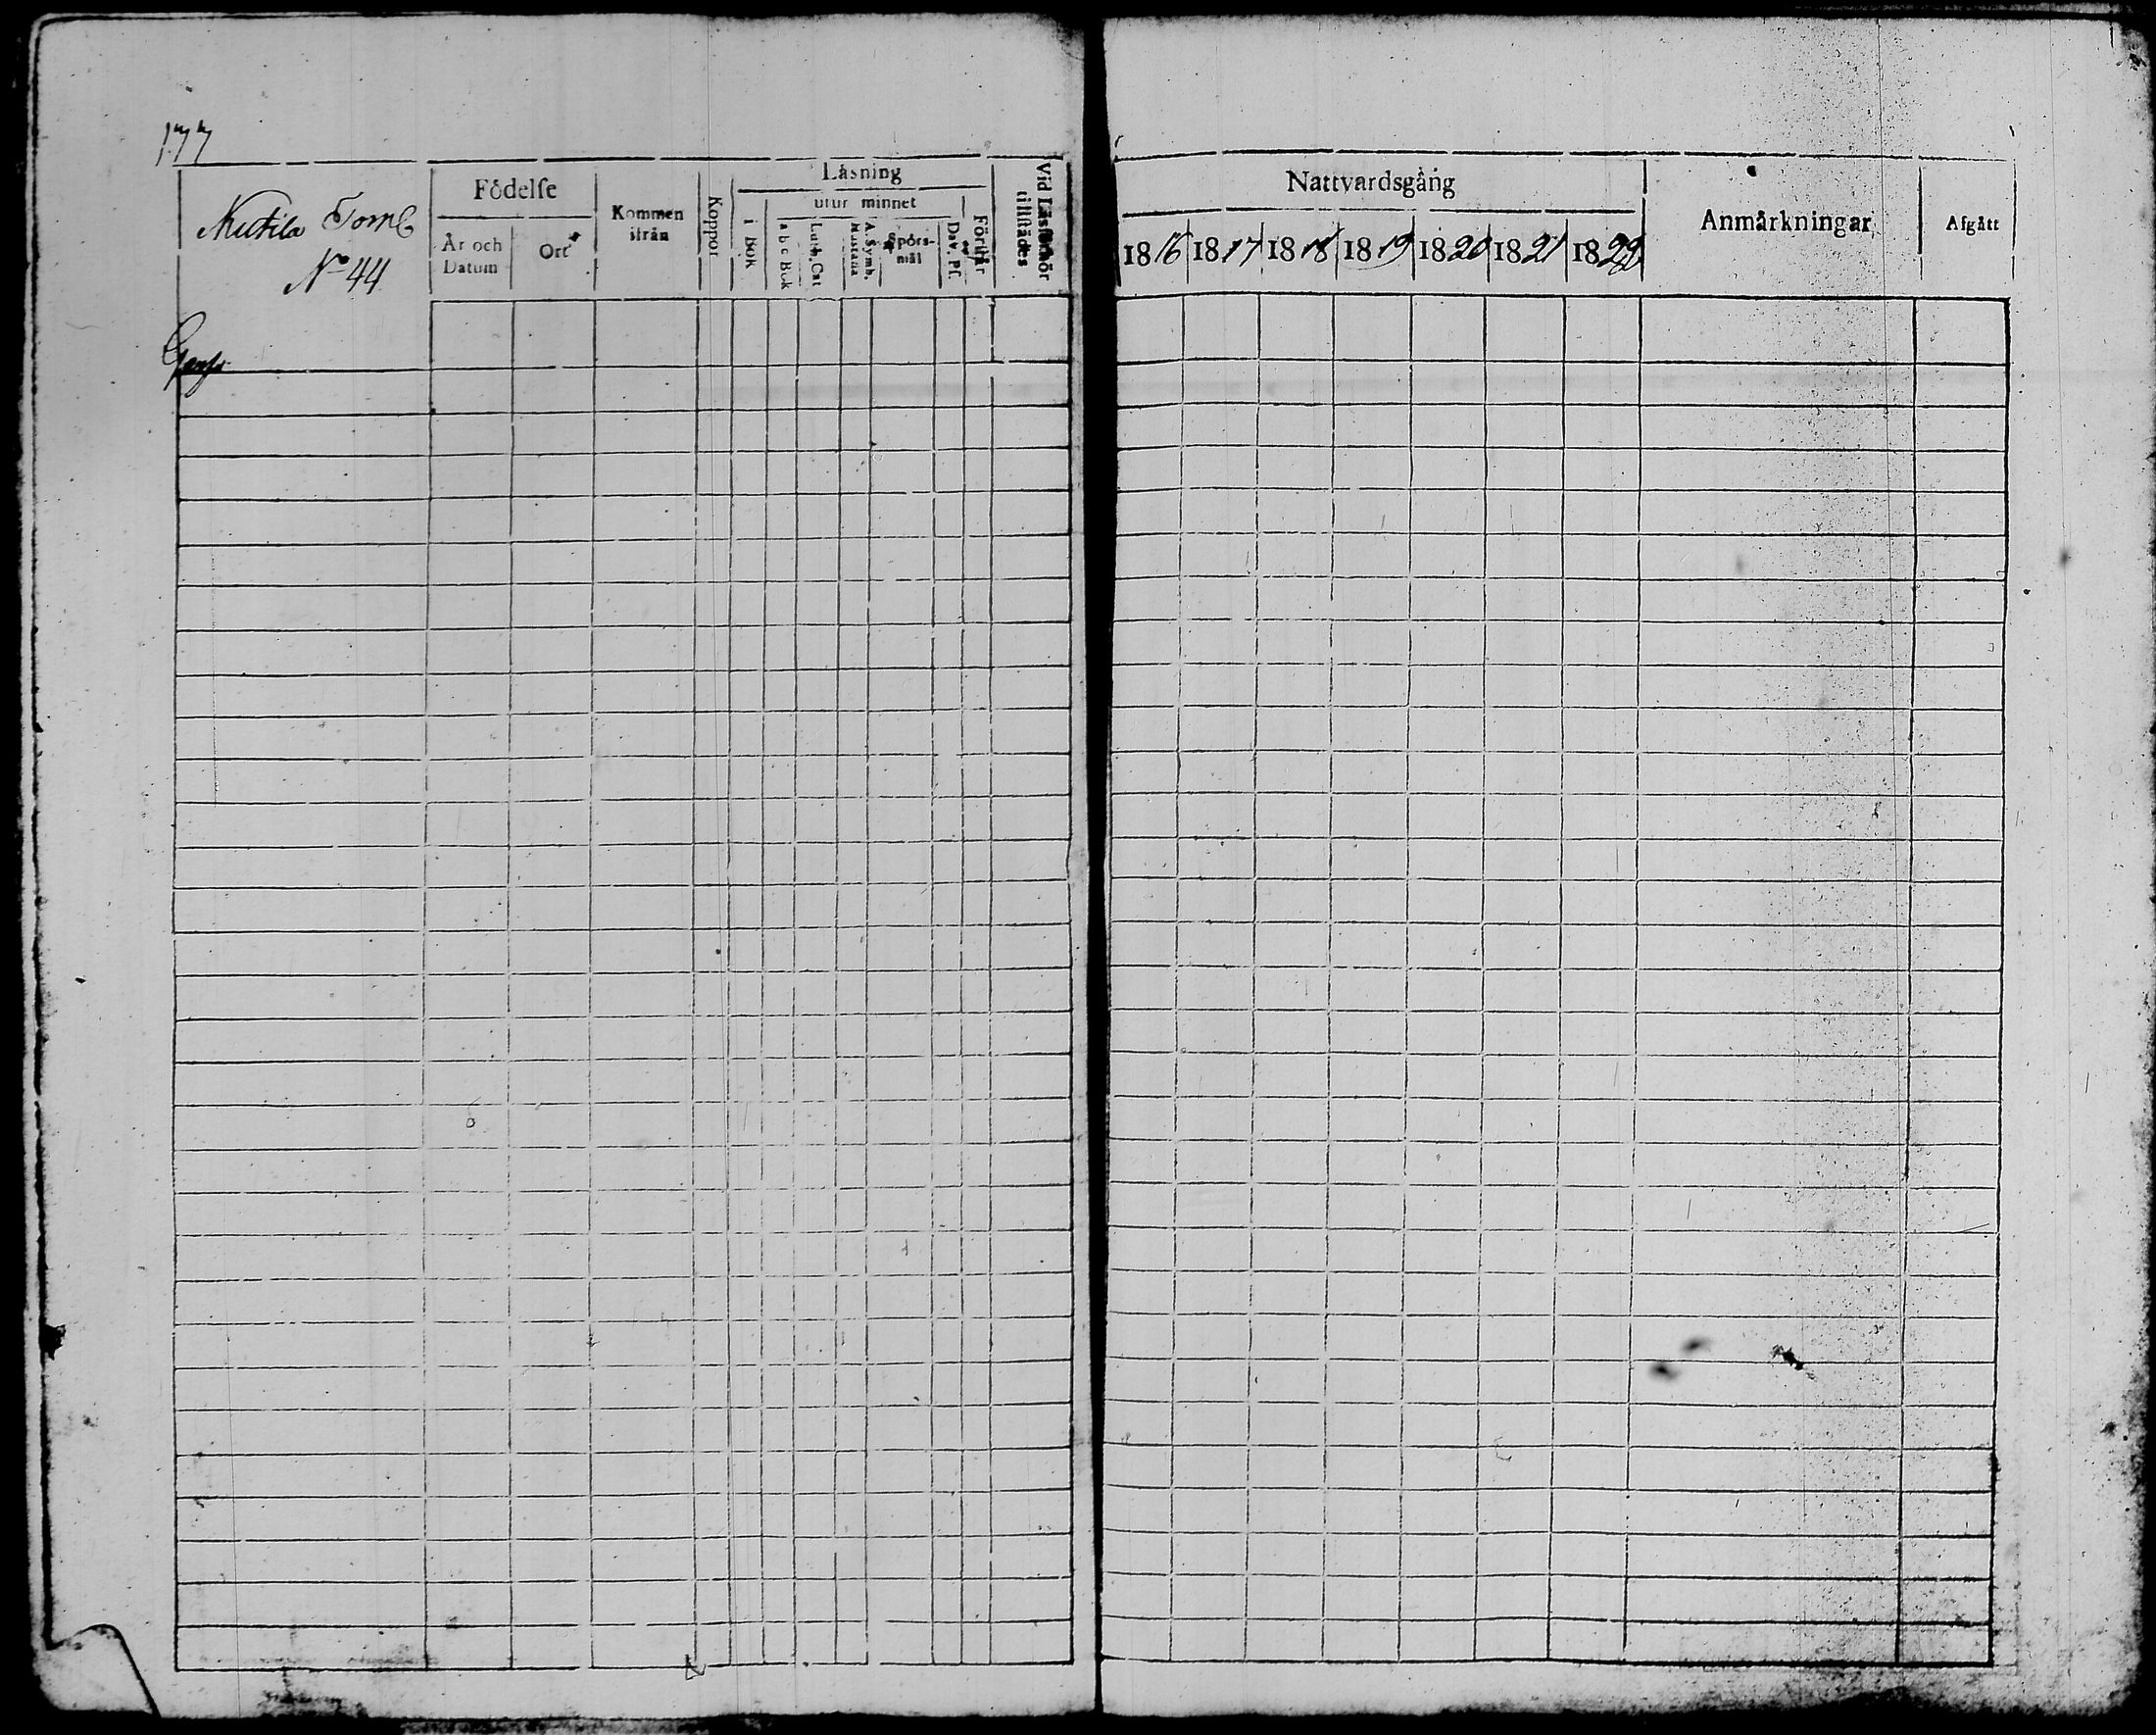 177
Nutila Tomt
No 44
Födelse
År och Datum
Ort
Kommen ifrån
Koppor
Läsning
i Bok
utur minnet
a b c Bok
Luth. Cat
A. Symb.
Hustafla
Spörs-
mål
Dav. Ps.
Förstår
Vid Läsförhör
tillstädes
Nattvardsgång
1816 1817 1818 1819 1820 1821 1822
Anmärkningar
Afgått